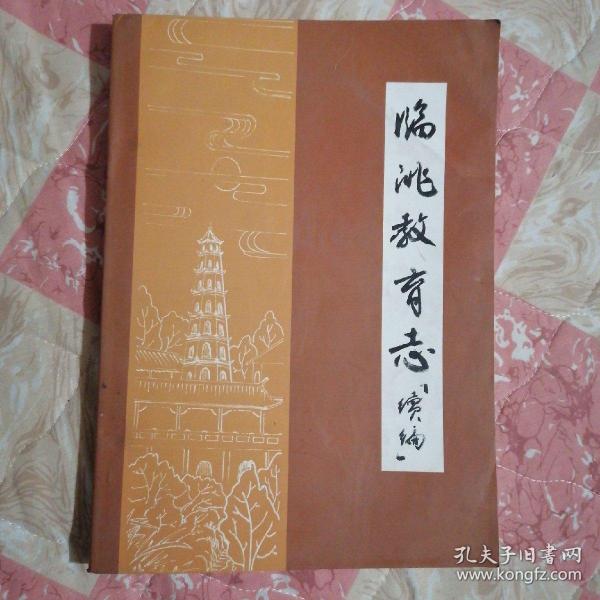 临洮教育志「續編」
孔夫子旧書网
www.kongfz.com